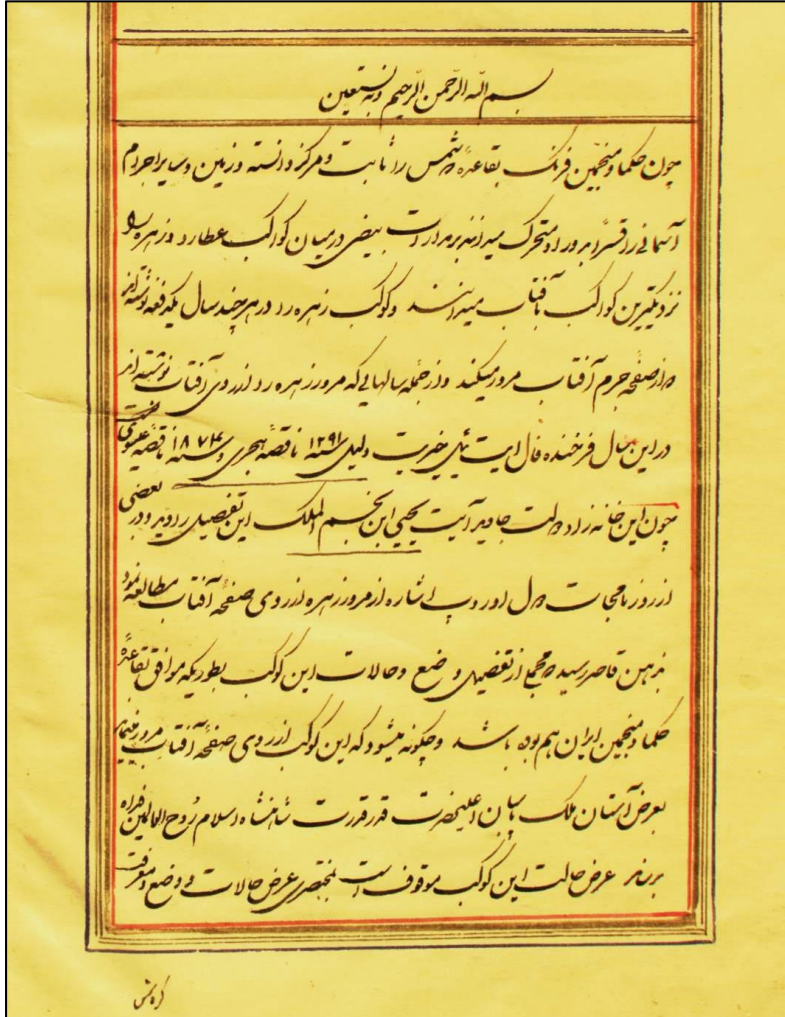 بسم الله الرحمن الرحیم وبه نستعین
چون حکما و منجمین فرنک بقاعده شمس را ثابت و مرکز دانسته و زمین و سایر اجرام
آسمانی را قسراً بدور او متحرک میدانند بر مدارات بیضی در میان کواکب عطارد و زهره را
نزدیکترین کواکب بآفتاب میدانند و کوکب زهره در هر چند سال یکدفعه نوشته‌اند
از صفحه جرم آفتاب مرور میکند و از جمله سالهایی که مرور زهره از روی آفتاب نوشته‌اند
در این سال فرخنده فال ایت ئیل خیریت دلیل سنه ۱۲۹۱ ناقصهٔ هجری و سنه ۱۸۷۴ ناقصه عیسوی است
چون این خانه زاد دولت جاوید آیت یحیی ابن نجم الملک این تفصیل را دید و در بعضی
از روزنامجات دول اورپ اشاره از مرور زهره از روی صفحهٔ آفتاب مطالعه نمود
بذهن قاصر رسید مجملی از تفصیل وضع و حالات این کوکب بطوریکه موافق بقاعدهٔ
حکما و منجمین ایران هم بوده باشد و چکونه میشود که این کوکب از روی صفحهٔ آفتاب مرور مینماید
بعرض آستان ملک پاسبان اعلیحضرت قدر قدرت شاهنشاه اسلام روح العالمین فداه
برساند عرض حالت این کوکب موقوف است بمختصری عرض حالات و وضع و معرفت
کردش